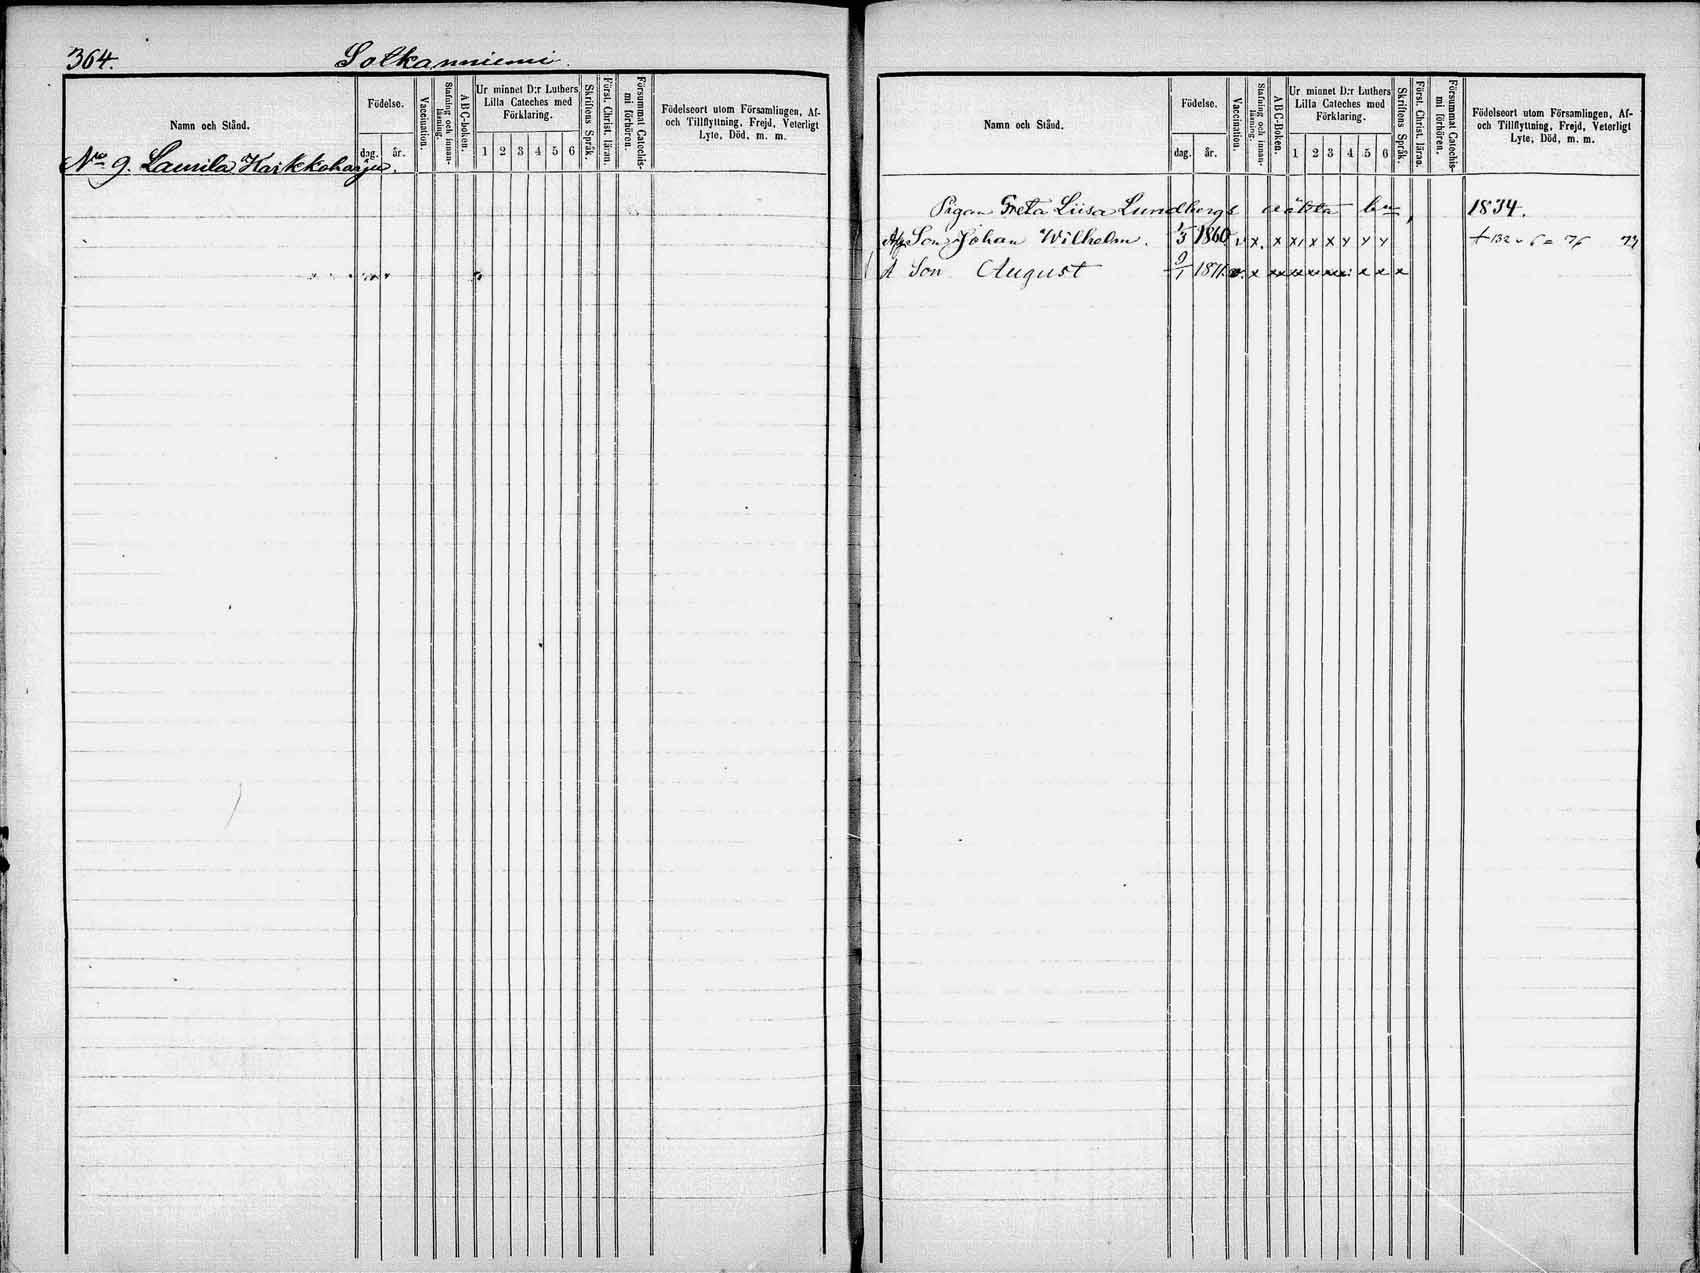 364. Solkanniemi.
Namn och Stånd.
Födelse.
dag. år.
Vaccination.
Stafning och innanläsning.
ABC-boken.
Ur minnet D:r Luthers
Lilla Cateches med
Förklaring.
1 2 3 4 5 6
Skriftens Språk.
Först. Christ. läran.
Försummat Catechismi förhören.
Födelseort utom Församlingen, Af-
och Tillflyttning, Frejd, Veterligt
Lyte, Död, m. m.
No 9. Laurila Karkkoharju.
Namn och Stånd.
Födelse.
dag. år.
Vaccination.
Stafning och innanläsning.
ABC-Boken.
Ur minnet D:r Luthers
Lilla Cateches med
Förklaring.
1 2 3 4 5 6
Skriftens Språk.
Först. Christ. läran.
Försummat Catechismi förhören.
Födelseort utom Församlingen, Af-
och Tillflyttning, Frejd, Veterligt
Lyte, Död, m. m.
Pigan Greta Liisa Lundbergs oäkta bn, 1834.
Son Johan Wilhelm. 1/3 1860 v x. x x x x y y y
A Son August 9/1 1871. v. x xx xx xx xx x x x